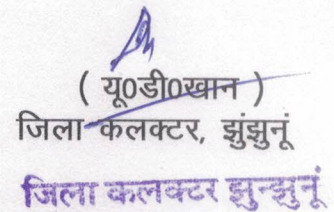 ( यू0डी0खान )
जिला कलक्टर, झुंझुनूं
जिला कलक्टर झुन्झुनूं